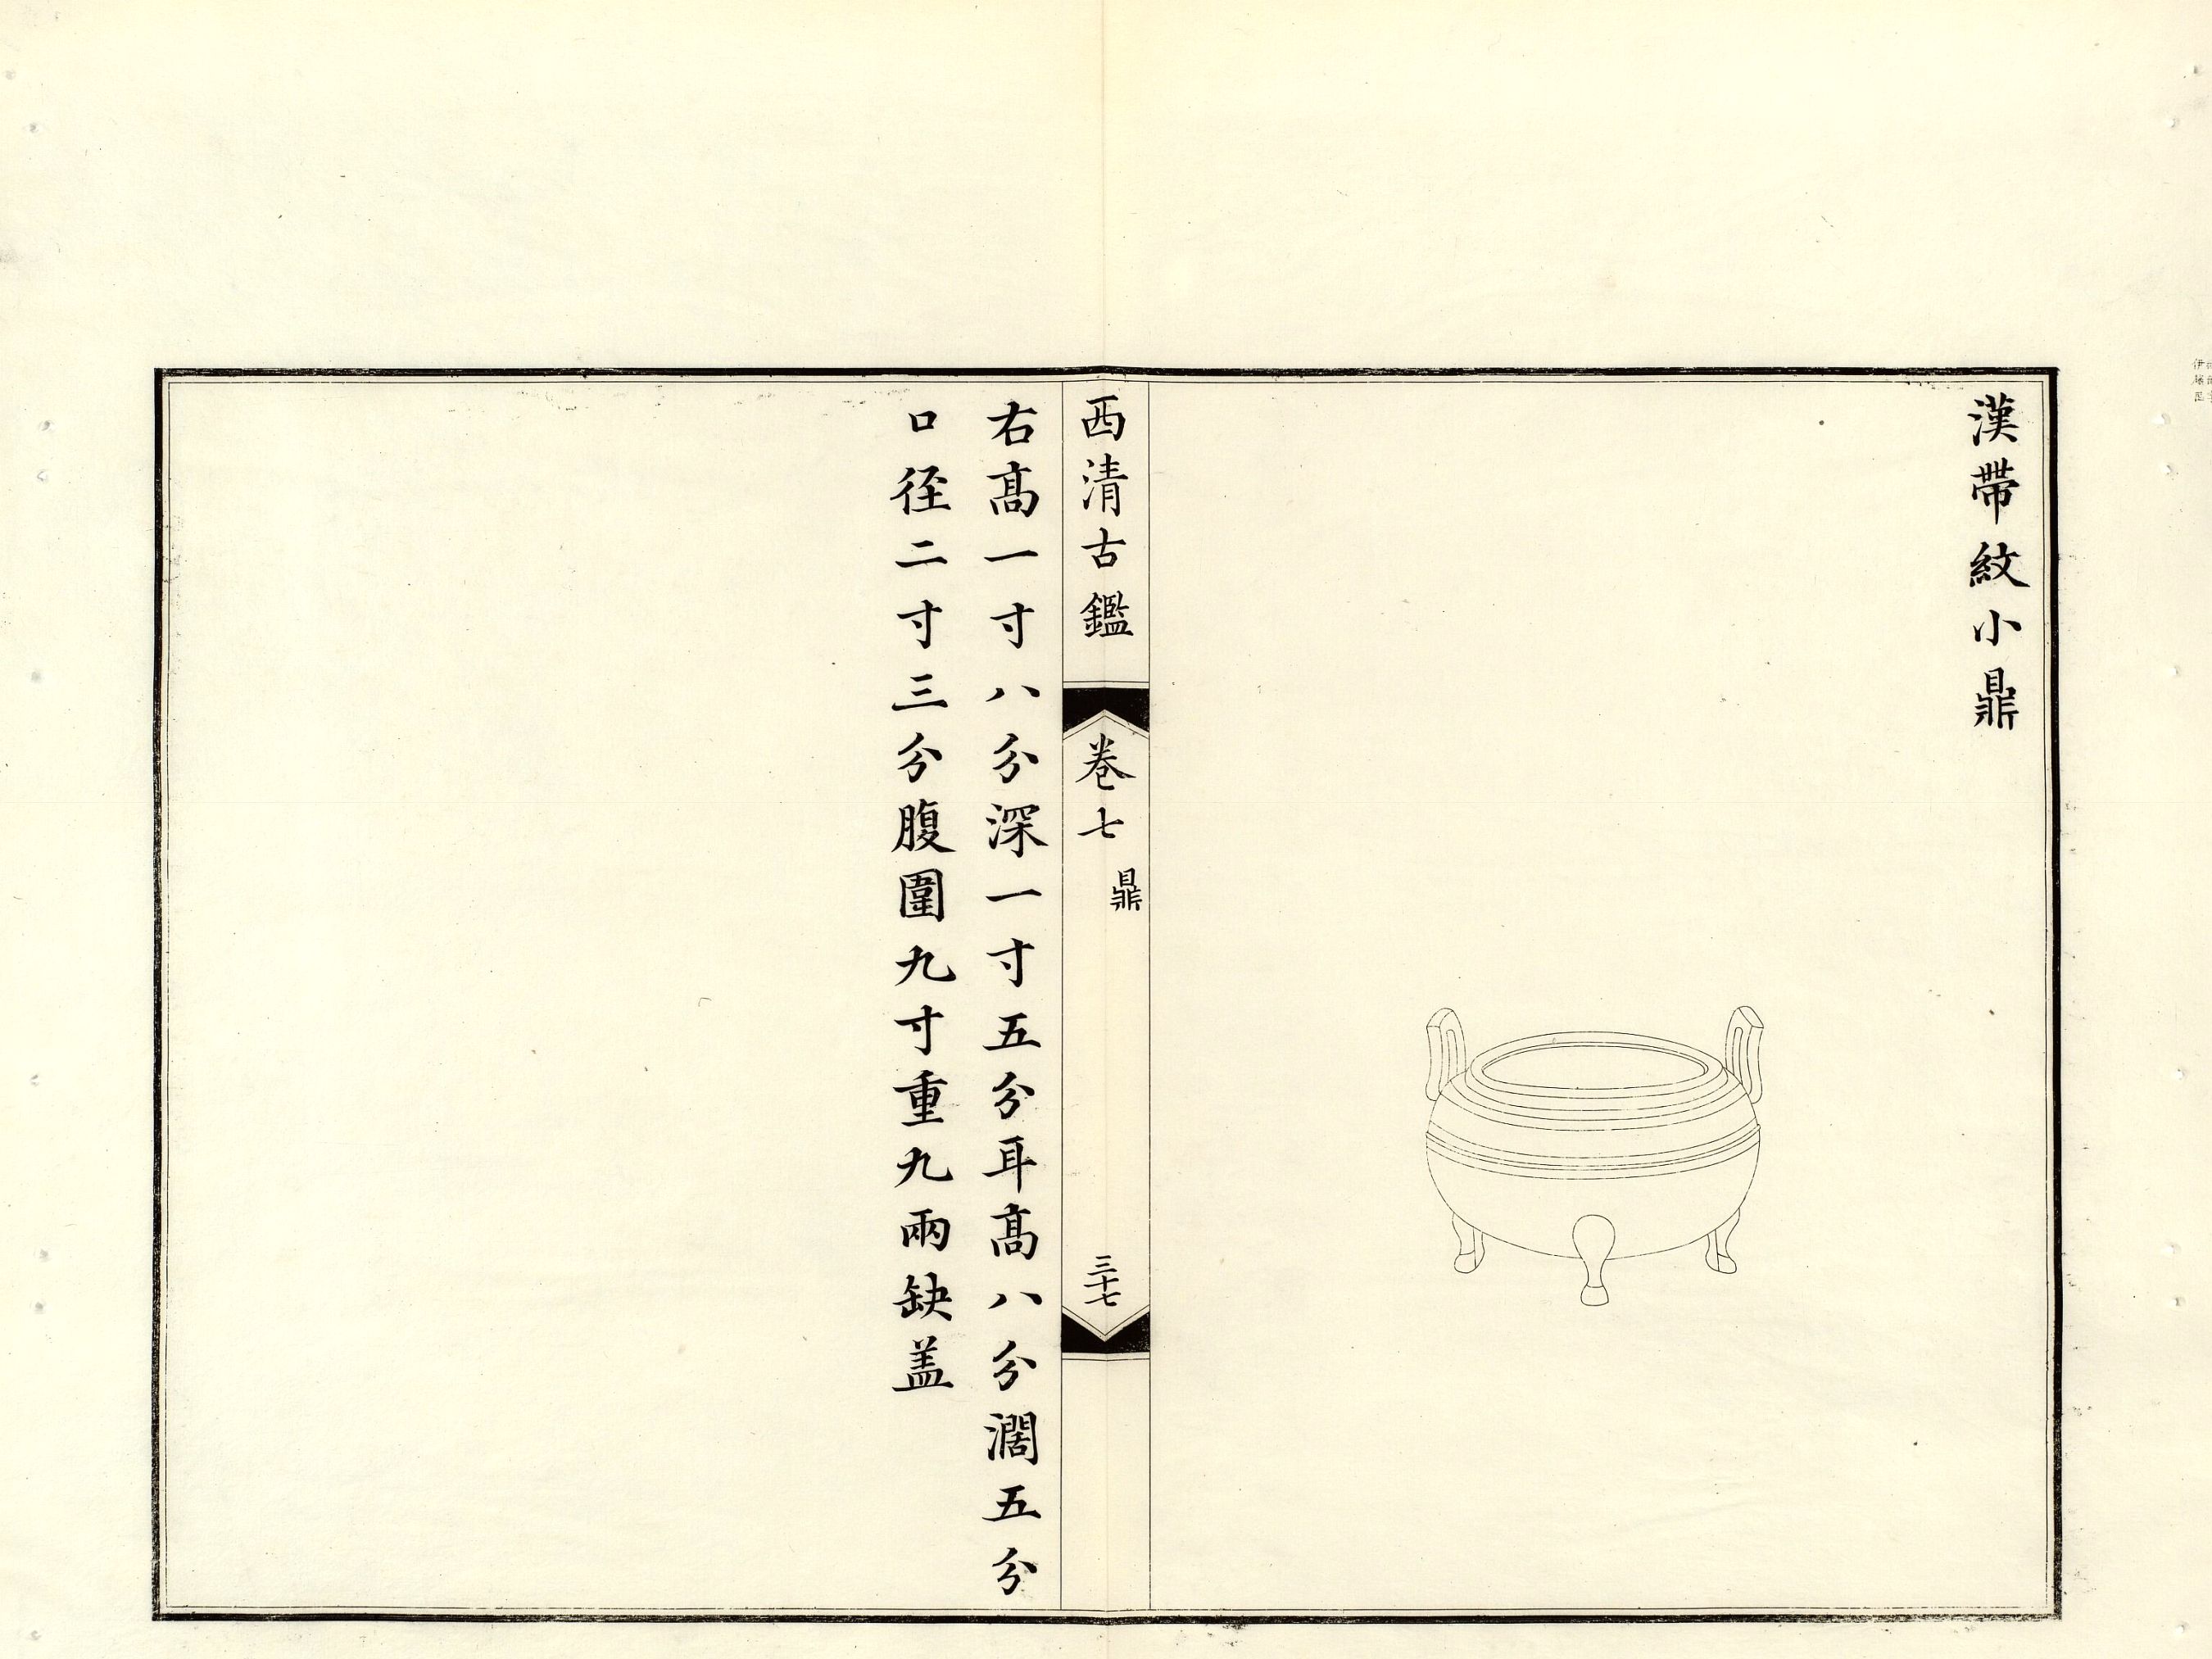 漢帶紋小鼎
西清古鑑
卷七
鼎
三十七
右髙一寸八分深一寸五分耳髙八分濶五分
口徑二寸三分腹圍九寸重九兩缺盖